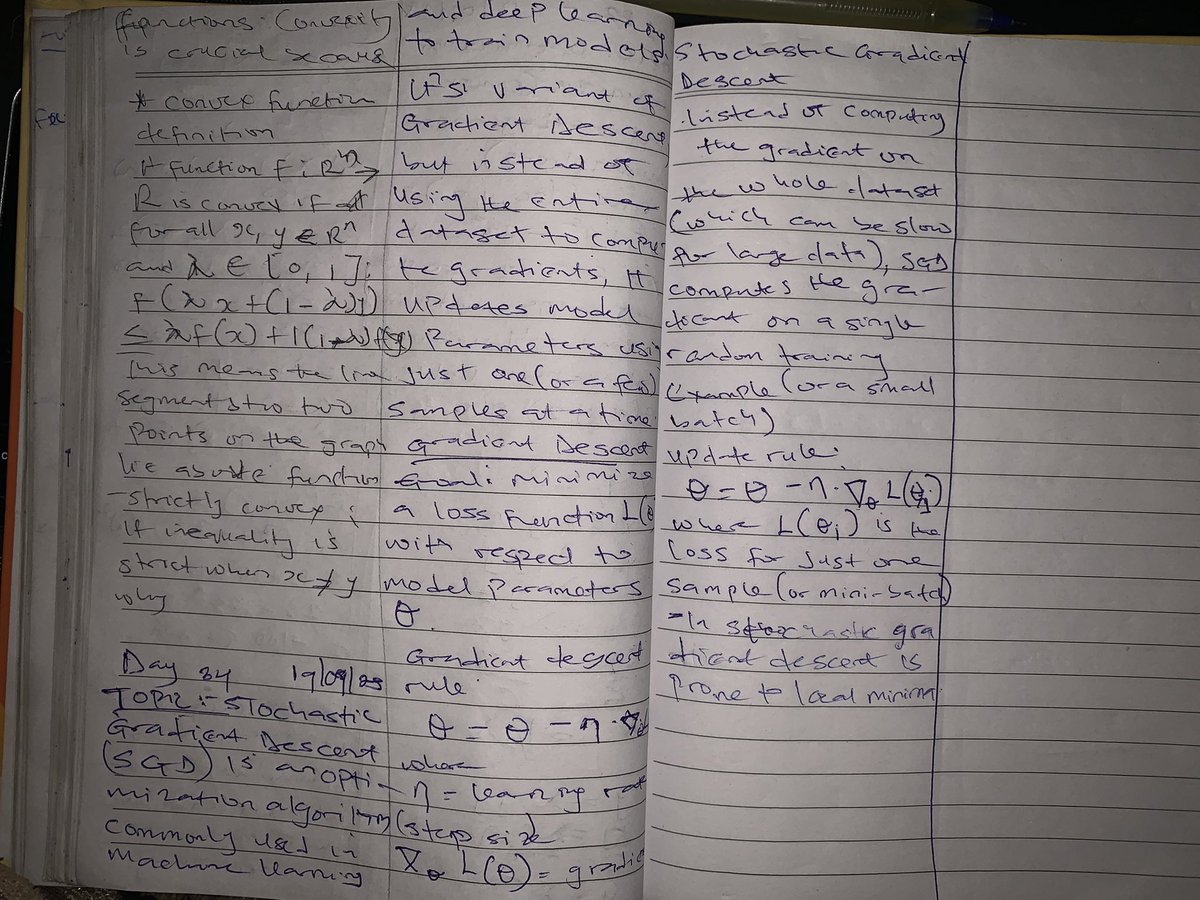 functions. Convexity
is crucial
* convex function
definition
A function f : Rⁿ →
R is convex if
for all x, y ∈ Rⁿ
and λ ∈ [0, 1];
f(λx + (1 - λ)y)
≤ λf(x) + 1(1-λ)f(y)
This means the line
segments two two
Points on the graph
lie above function
- strictly convex :
if inequality is
strict when x ≠ y
why
Day 34 19/09/25
TOPIC :- Stochastic
Gradient Descent
(SGD) is an opti-
mization algorithm
commonly used in
machine learning
and deep learning
to train models.
It's variant of
Gradient Descent
but instead of
using the entire
dataset to compu
te gradients, it
updates model
Parameters usi
just one (or a few)
samples at a time
Gradient Descent
Goal: minimize
a loss function L(θ
with respect to
model parameters
θ.
Gradient descent
rule
θ = θ - η · ∇
where
η = learning rat
(step size
∇θ L(θ) = gradie
Stochastic Gradient
Descent
. Instead of computing
the gradient on
the whole dataset
(which can be slow
for large data), SGD
computes the gra-
dient on a single
random training
Example (or a small
batch)
update rule:
θ = θ - η · ∇θ L(θj)
where L(θi) is the
loss for just one
sample (or mini-batch)
- In stochastic gra
dient descent is
prone to local minima